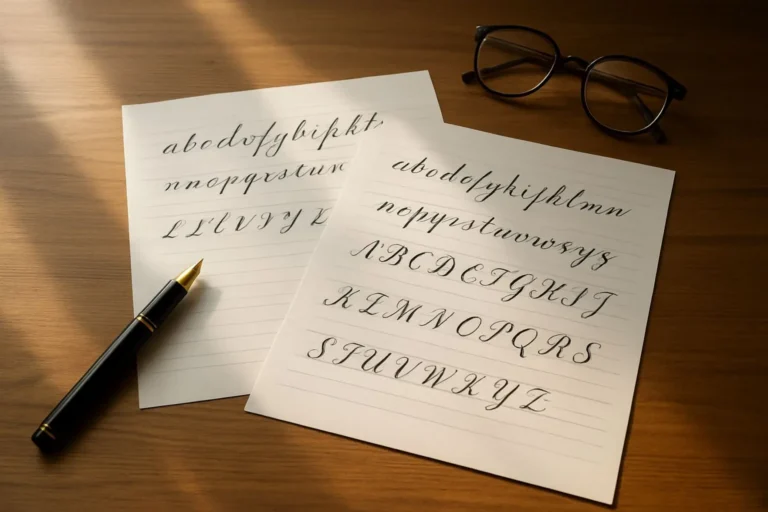 abodofybipkt
nnopqxstuv
LLLVYYL
abodofykifhlmn
nopyrstuvwsys
ABCDETGHIJ
KEMNOPQRS
STUVWKYZ